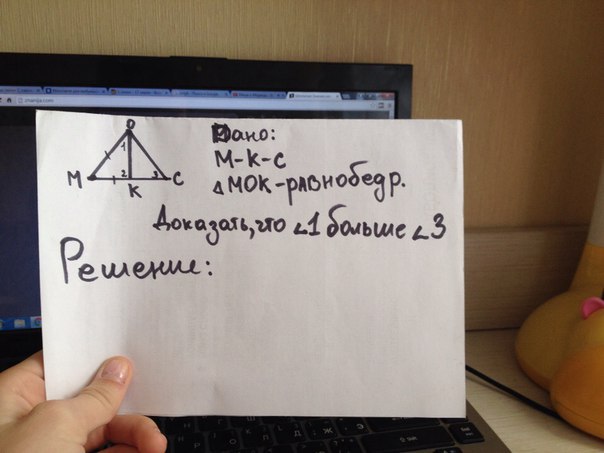 O
1
M 2 3 C
K
Дано:
М-К-С
△МОК-равнобедр.
Доказать, что ∠1 больше ∠3
Решение: